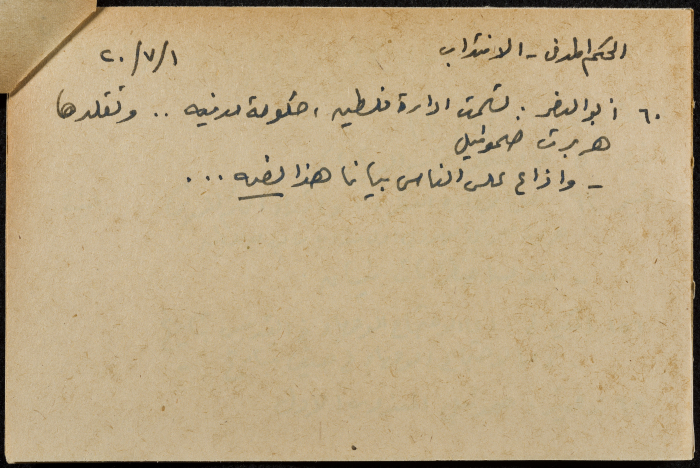 الحكم المدني - الانتداب ٢٠/٧/١
٦٠ أبو النصر : تسلمت ادارة فلسطين ، حكومة مدنيه .. وتقلدها
هربرت صموئيل
- واذاع على الناس بيانا هذا نصه ...